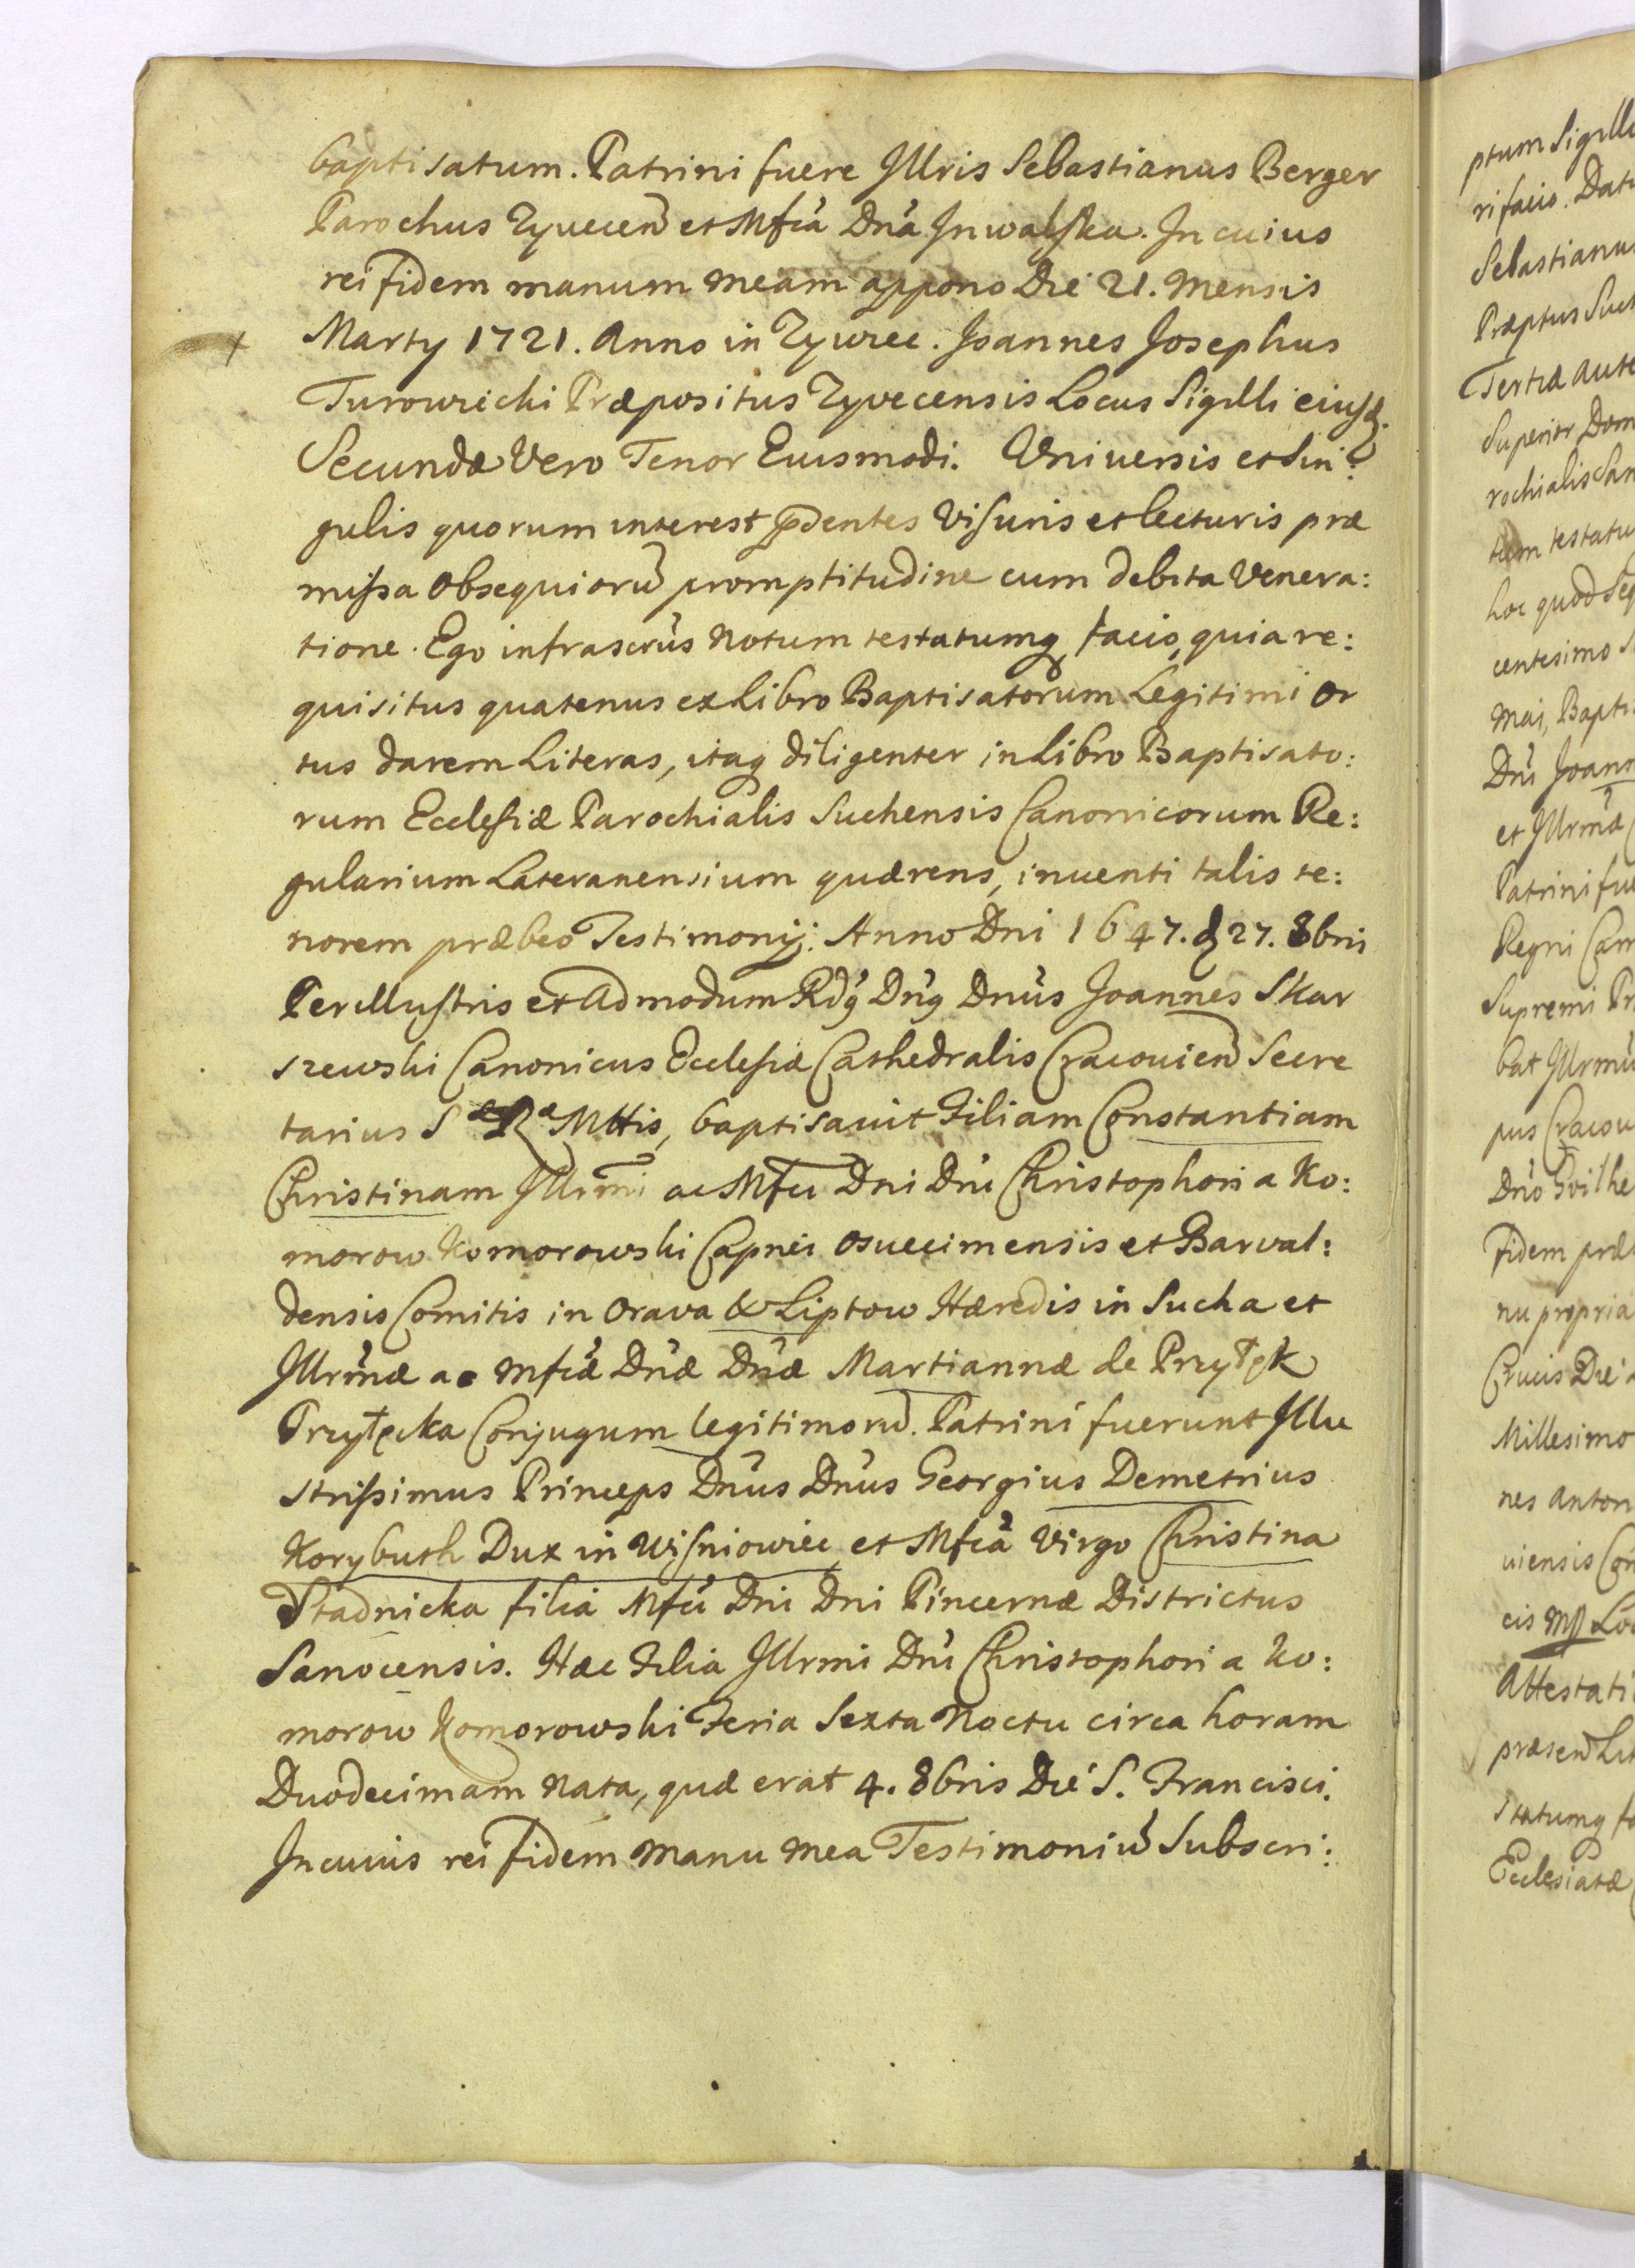 baptisatum. Patrini fuere Jllris Sebastianus Berger
Parochus Zyvecen̄ et Mfcà Dnà Jnwalska. Jn cuius
rei fidem manum meam appono Die 21. Mensis
Marty 1721. Anno in Zywiec. Joannes Josephus
Turowichi Præpositus Zyvecensis Locus Sigilli eiusq.
Secundæ Vero Tenor Eiusmodi. Universis et Sin:
gulis quorum interest p̄dentes Visuris et lecturis præ
missa Obsequiorū promptitudine cum debita Venera:
tione. Ego infrascrùs Notum testatumq facio, quia re:
quisitus quatenus ex Libro Baptisatorum Legitimi Or
tus darem Literas, itaq diligenter in Libro Baptisato:
rum Ecclesiæ Parochialis Suchensis Canonicorum Re:
gularium Lateranensium quærens, inventi talis te:
norem præbeo Testimonij: Anno Dni 1647. d 27. 8bris
Perillustris et Admodum Rdq Dnq Dnùs Joannes Skar
szewski Canonicus Ecclesiæ Cathedralis Cracovien̄ Secre
tarius Sæ Ræ Mttis, baptisavit Filiam Constantiam
Christinam Jllrmi ac Mfci Dni Dni Christophori a Ko:
morow Komorowski Capnei Osvecimensis et Barval:
densis Comitis in Orava & Liptow Hæredis in Sucha et
Jllrmæ ac Mfcæ Dnæ Dnæ Martiannæ de Przyłęk
Przyłęcka Conjugum legitimorū. Patrini fuerunt Jllu
strissimus Princeps Dnus Dnus Georgius Demetrius
Korybuth Dux in Wisniowiec et Mfcà Virgo Christina
Stadnicka filia Mfci Dni Dni Pincernæ Districtus
Sanocensis. Hæc Filia Jllrmi Dni Christophori a Ko:
morow Komorowski Feria Sexta Noctu circa horam
Duodecimam Nata, quæ erat 4. 8bris Die S. Francisci.
Jn cuius rei fidem manu mea Testimoniū Subscri:
ptum Sigill
ri facio. Dat
Sebastianu
Præptus Suc
Tertiæ aute
Superior Dom
rochialis San
tum testatu
hoc quod Seq
centesimo
Mai, Bapti
Dni Joann
et Jllrmæ
Patrini fue
Regni Cam
Supremi Pr
bat Jllrmù
pus Cracov
Dno Gvilhe
Fidem præ
nu propria
Crucis Die
Millesimo
nes Anton
viensis Con
cis Mp Lo
Attestati
præsen̄ Lit
statumq fa
Ecclesiatæ